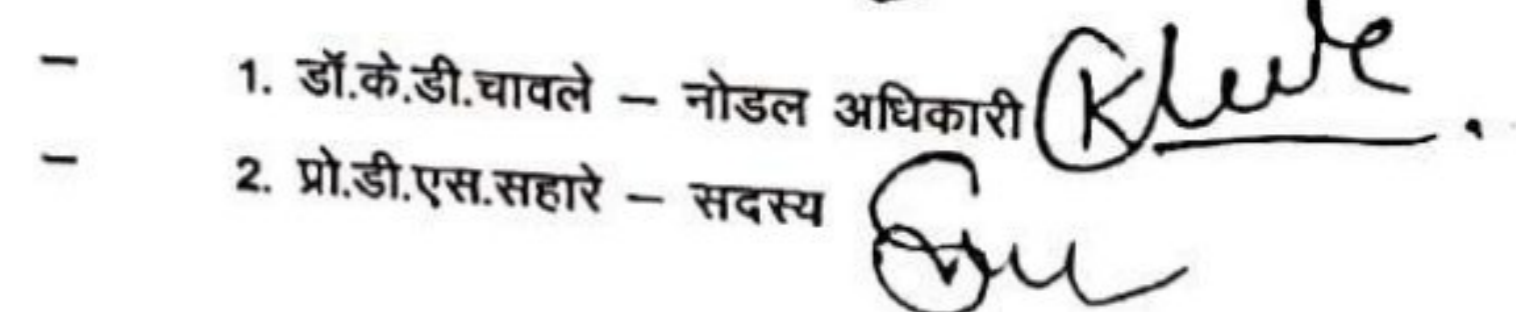 – 1. डॉ.के.डी.चावले – नोडल अधिकारी
– 2. प्रो.डी.एस.सहारे – सदस्य